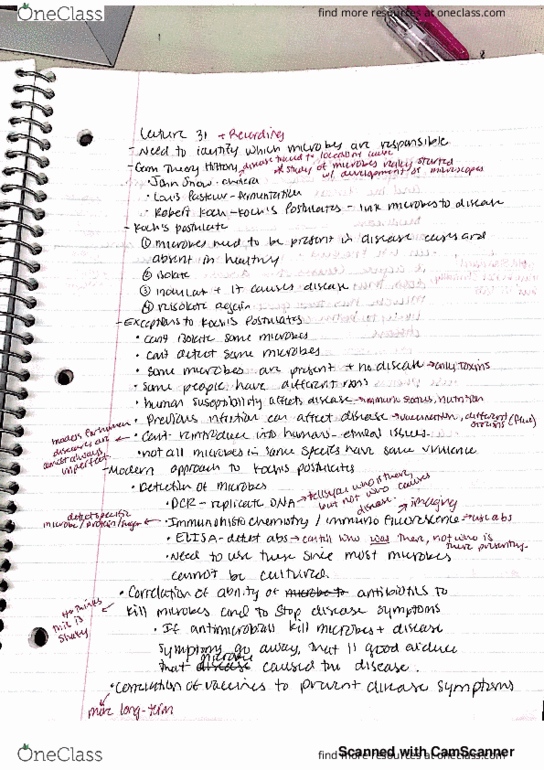 OneClass
find more resources at oneclass.com
Lecture 31 + Recording
- Need to identify which microbes are responsible
- Germ Theory History
* study of microbes really started
w/ development of microscopes
· John Snow - cholera
· Louis Pasteur - fermentation
· Robert Koch - Koch's Postulates - link microbes to disease
- Koch's postulate
① microbes need to be present in disease cases and
absent in healthy
② isolate
③ inoculate + it causes disease
④ reisolate again
- Exceptions to Koch's Postulates
· can't isolate some microbes
· can't detect some microbes
· some microbes are present + no disease → only toxins
· some people have different
· human susceptibility affects disease → immune status, nutrition
· Previous infection can affect disease → vaccination, different (flu)
· Can't reintroduce into humans - ethical issues.
models for human
diseases are
almost always
imperfect
· not all microbes in same species have same virulence
- Modern approach to Kochs postulates
· Detection of microbes
· PCR - replicate DNA → tells you who is there,
but not who causes
disease.
→ imaging
· Immunohistochemistry / immuno fluorescence → use abs
detect specific
microbe / protein / sugar
· ELISA - detect abs → can tell who was there, not who is
there presently.
· Need to use these since most microbes
cannot be cultured.
· Correlation of ability of antibiotics to
kill microbes and to stop disease symptoms
thinks
this is
shaky
· If antimicrobials kill microbes + disease
symptoms go away, that is good evidence
that microbe caused the disease.
· Correlation of vaccines to prevent disease symptoms
more long-term
Scanned with CamScanner
OneClass
find more resources at oneclass.com